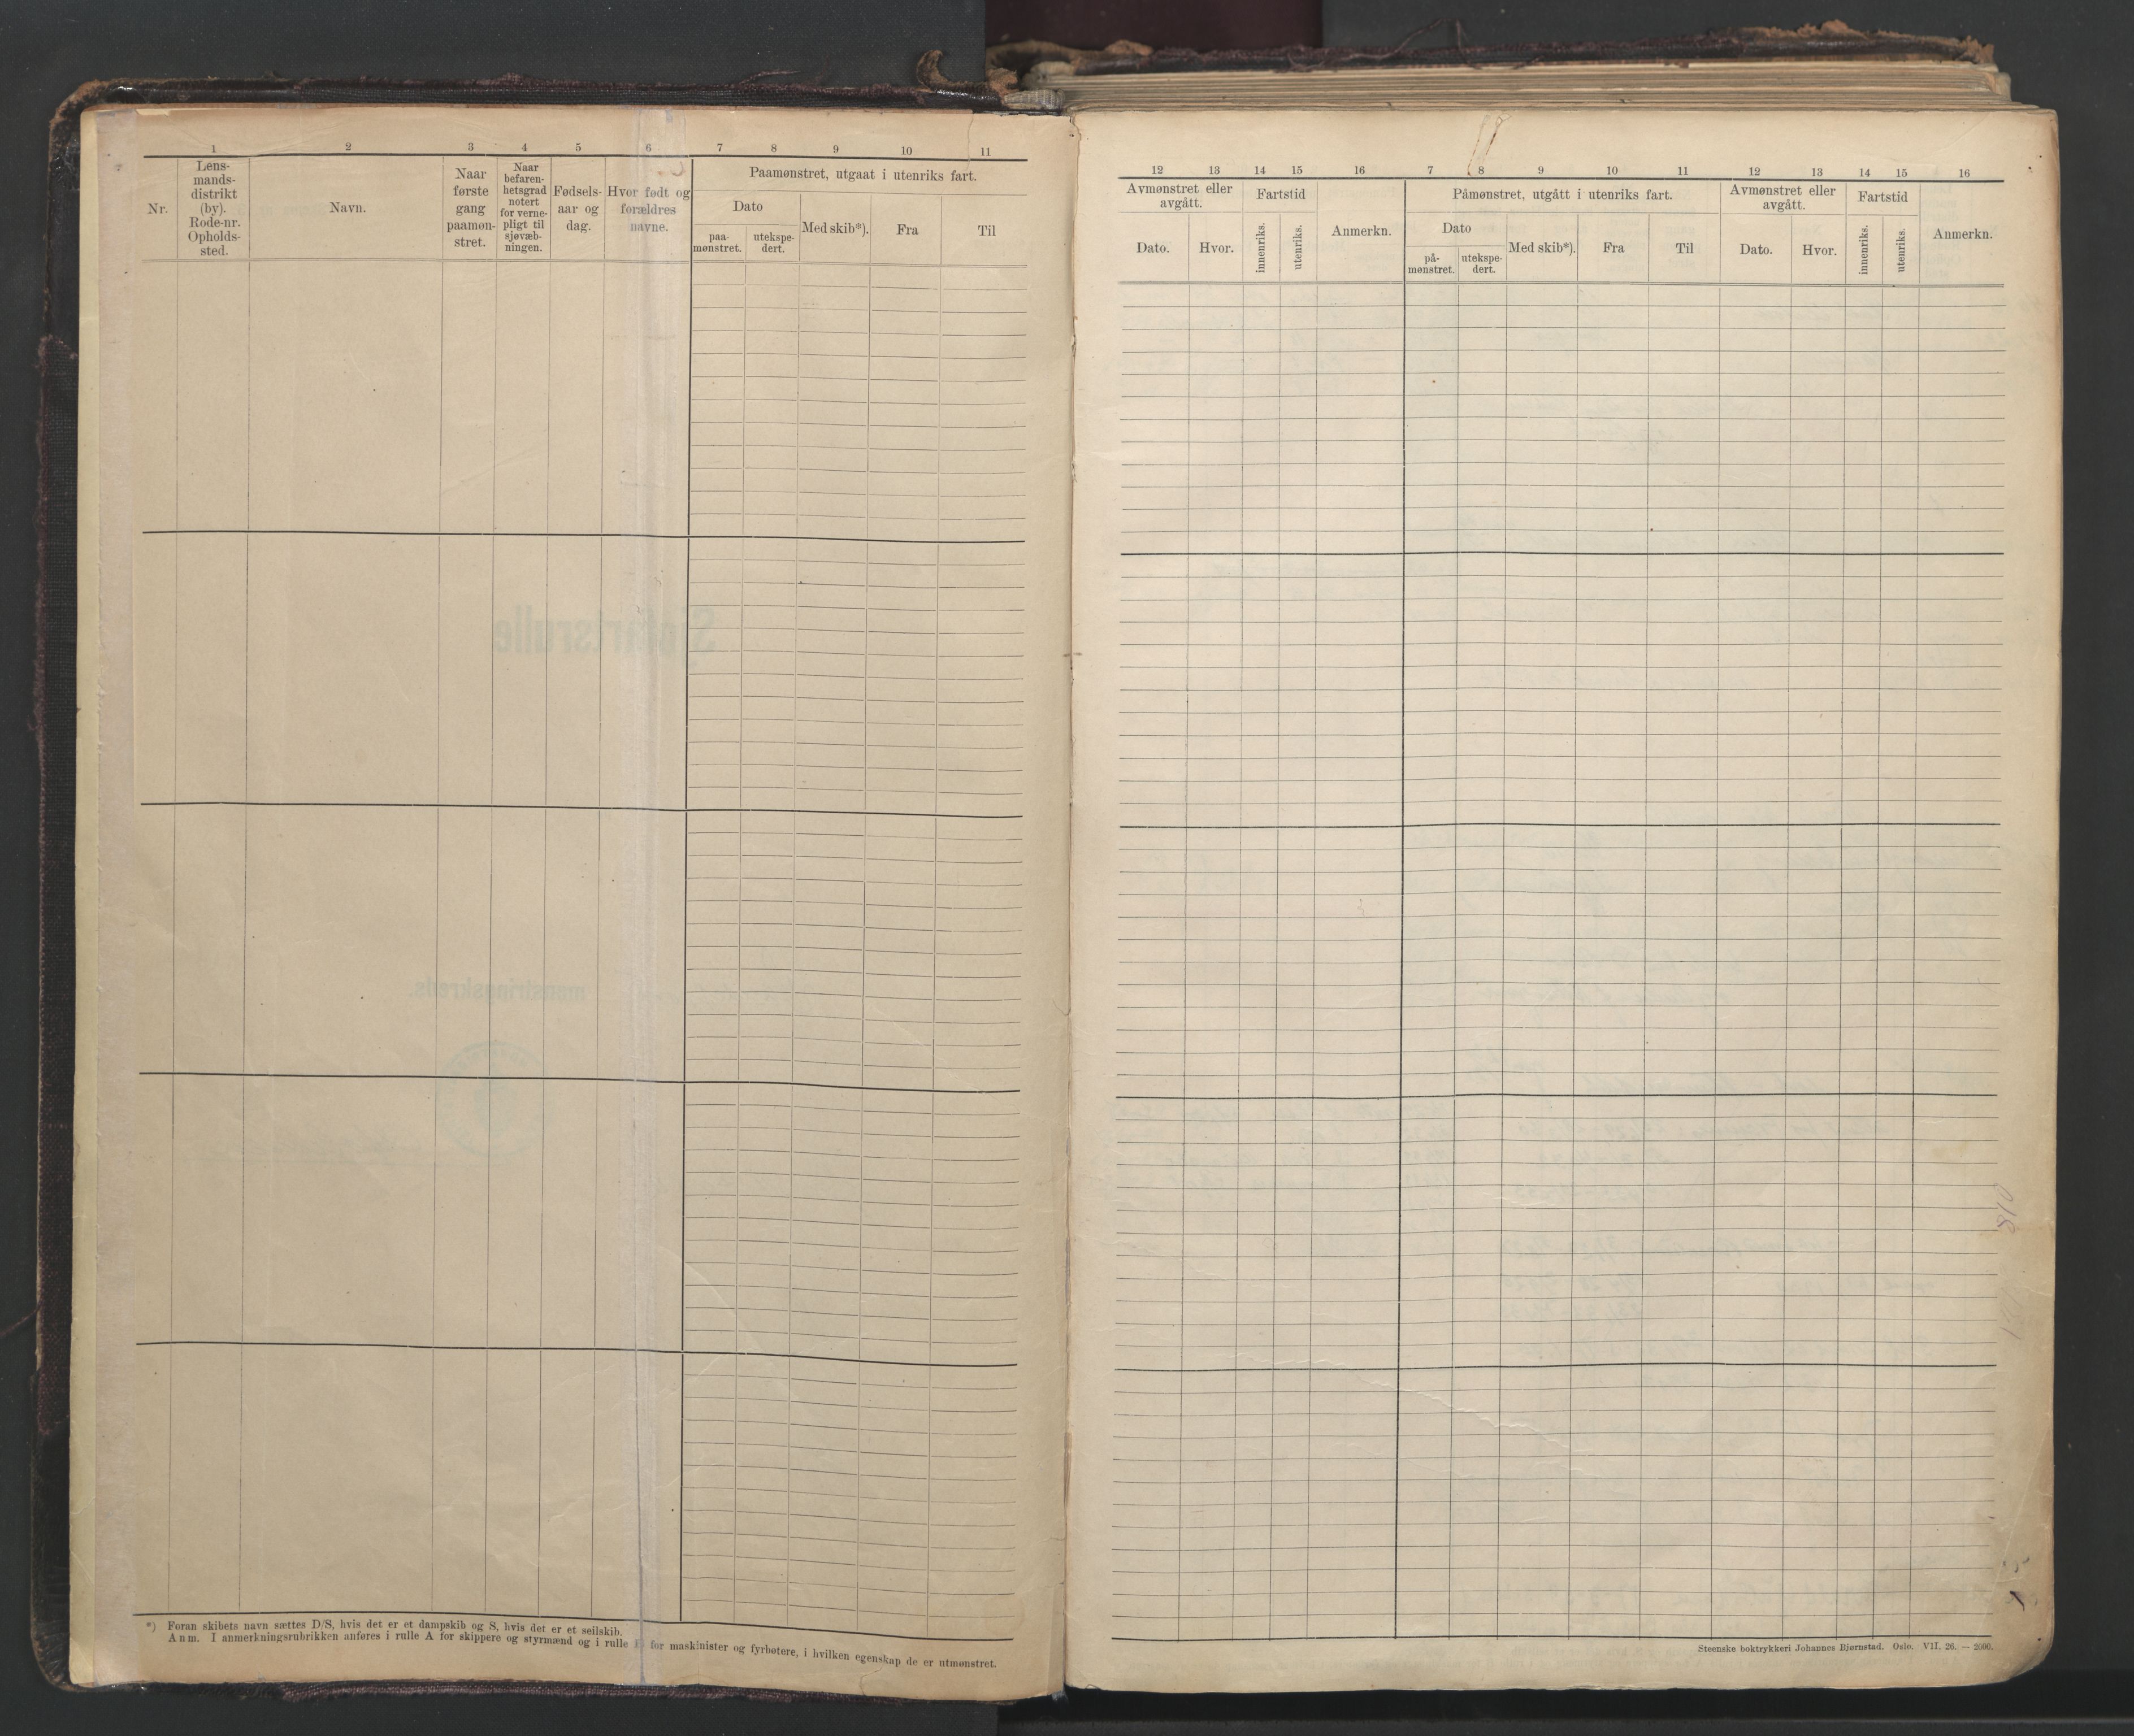 1 2 3 4 5 6 7 8 9 10 11
Nr.
Lens-
mands-
distrikt
(by).
Rode-nr.
Opholds-
sted.
Navn.
Naar
første
gang
paamøn-
stret.
Naar
befaren-
hetsgrad
notert
for verne-
pligt til
sjøvæb-
ningen.
Fødsels-
aar og
dag.
Hvor født og
forældres
navne.
Paamønstret, utgaat i utenriks fart.
Dato
paa-
mønstret.
utekspe-
dert.
Med skib*).
Fra
Til
Sjøfartsrulle
mønstringskreds.
*) Foran skibets navn sættes D/S, hvis det er et dampskib og S, hvis det er et seilskib.
Anm. I anmerkningsrubrikken anføres i rulle A for skippere og styrmænd og i rulle B for maskinister og fyrbøtere, i hvilken egenskap de er utmønstret.
12 13 14 15 16 7 8 9 10 11 12 13 14 15 16
Avmønstret eller
avgått.
Dato.
Hvor.
Fartstid
innenriks.
utenriks.
Anmerkn.
Påmønstret, utgått i utenriks fart.
Dato
på-
mønstret.
utekspe-
dert.
Med skib*).
Fra
Til
Avmønstret eller
avgått.
Dato.
Hvor.
Fartstid
innenriks.
utenriks.
Anmerkn.
810
Steenske boktrykkeri Johannes Bjørnstad. Oslo. VII. 26. — 2000.